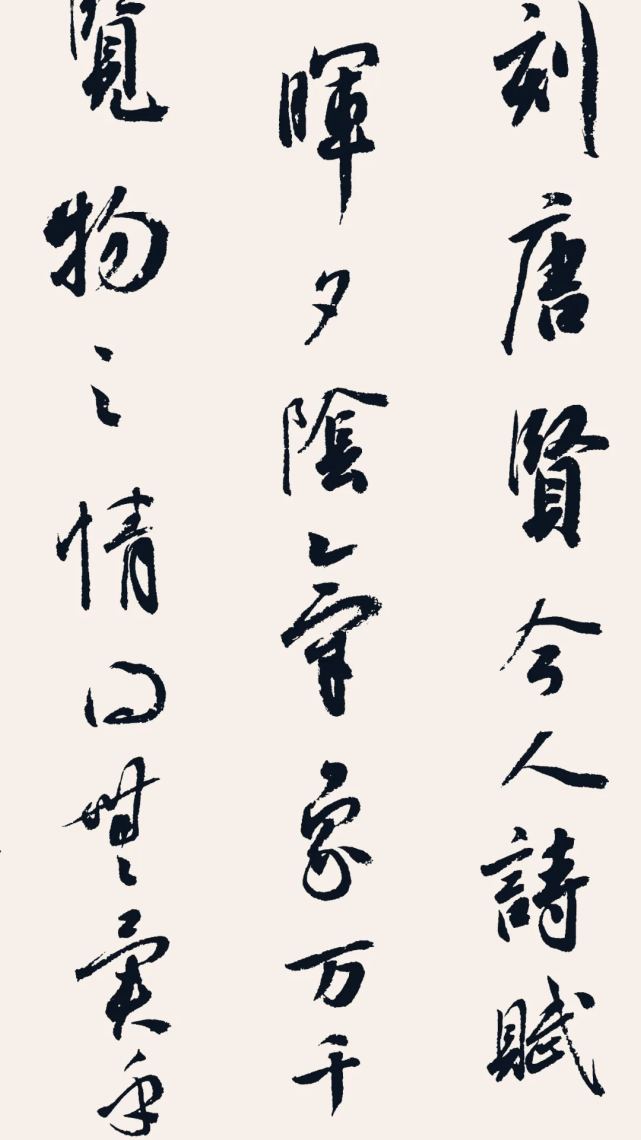 刻唐賢今人詩賦
暉夕陰氣象万千
覽物之情無異乎